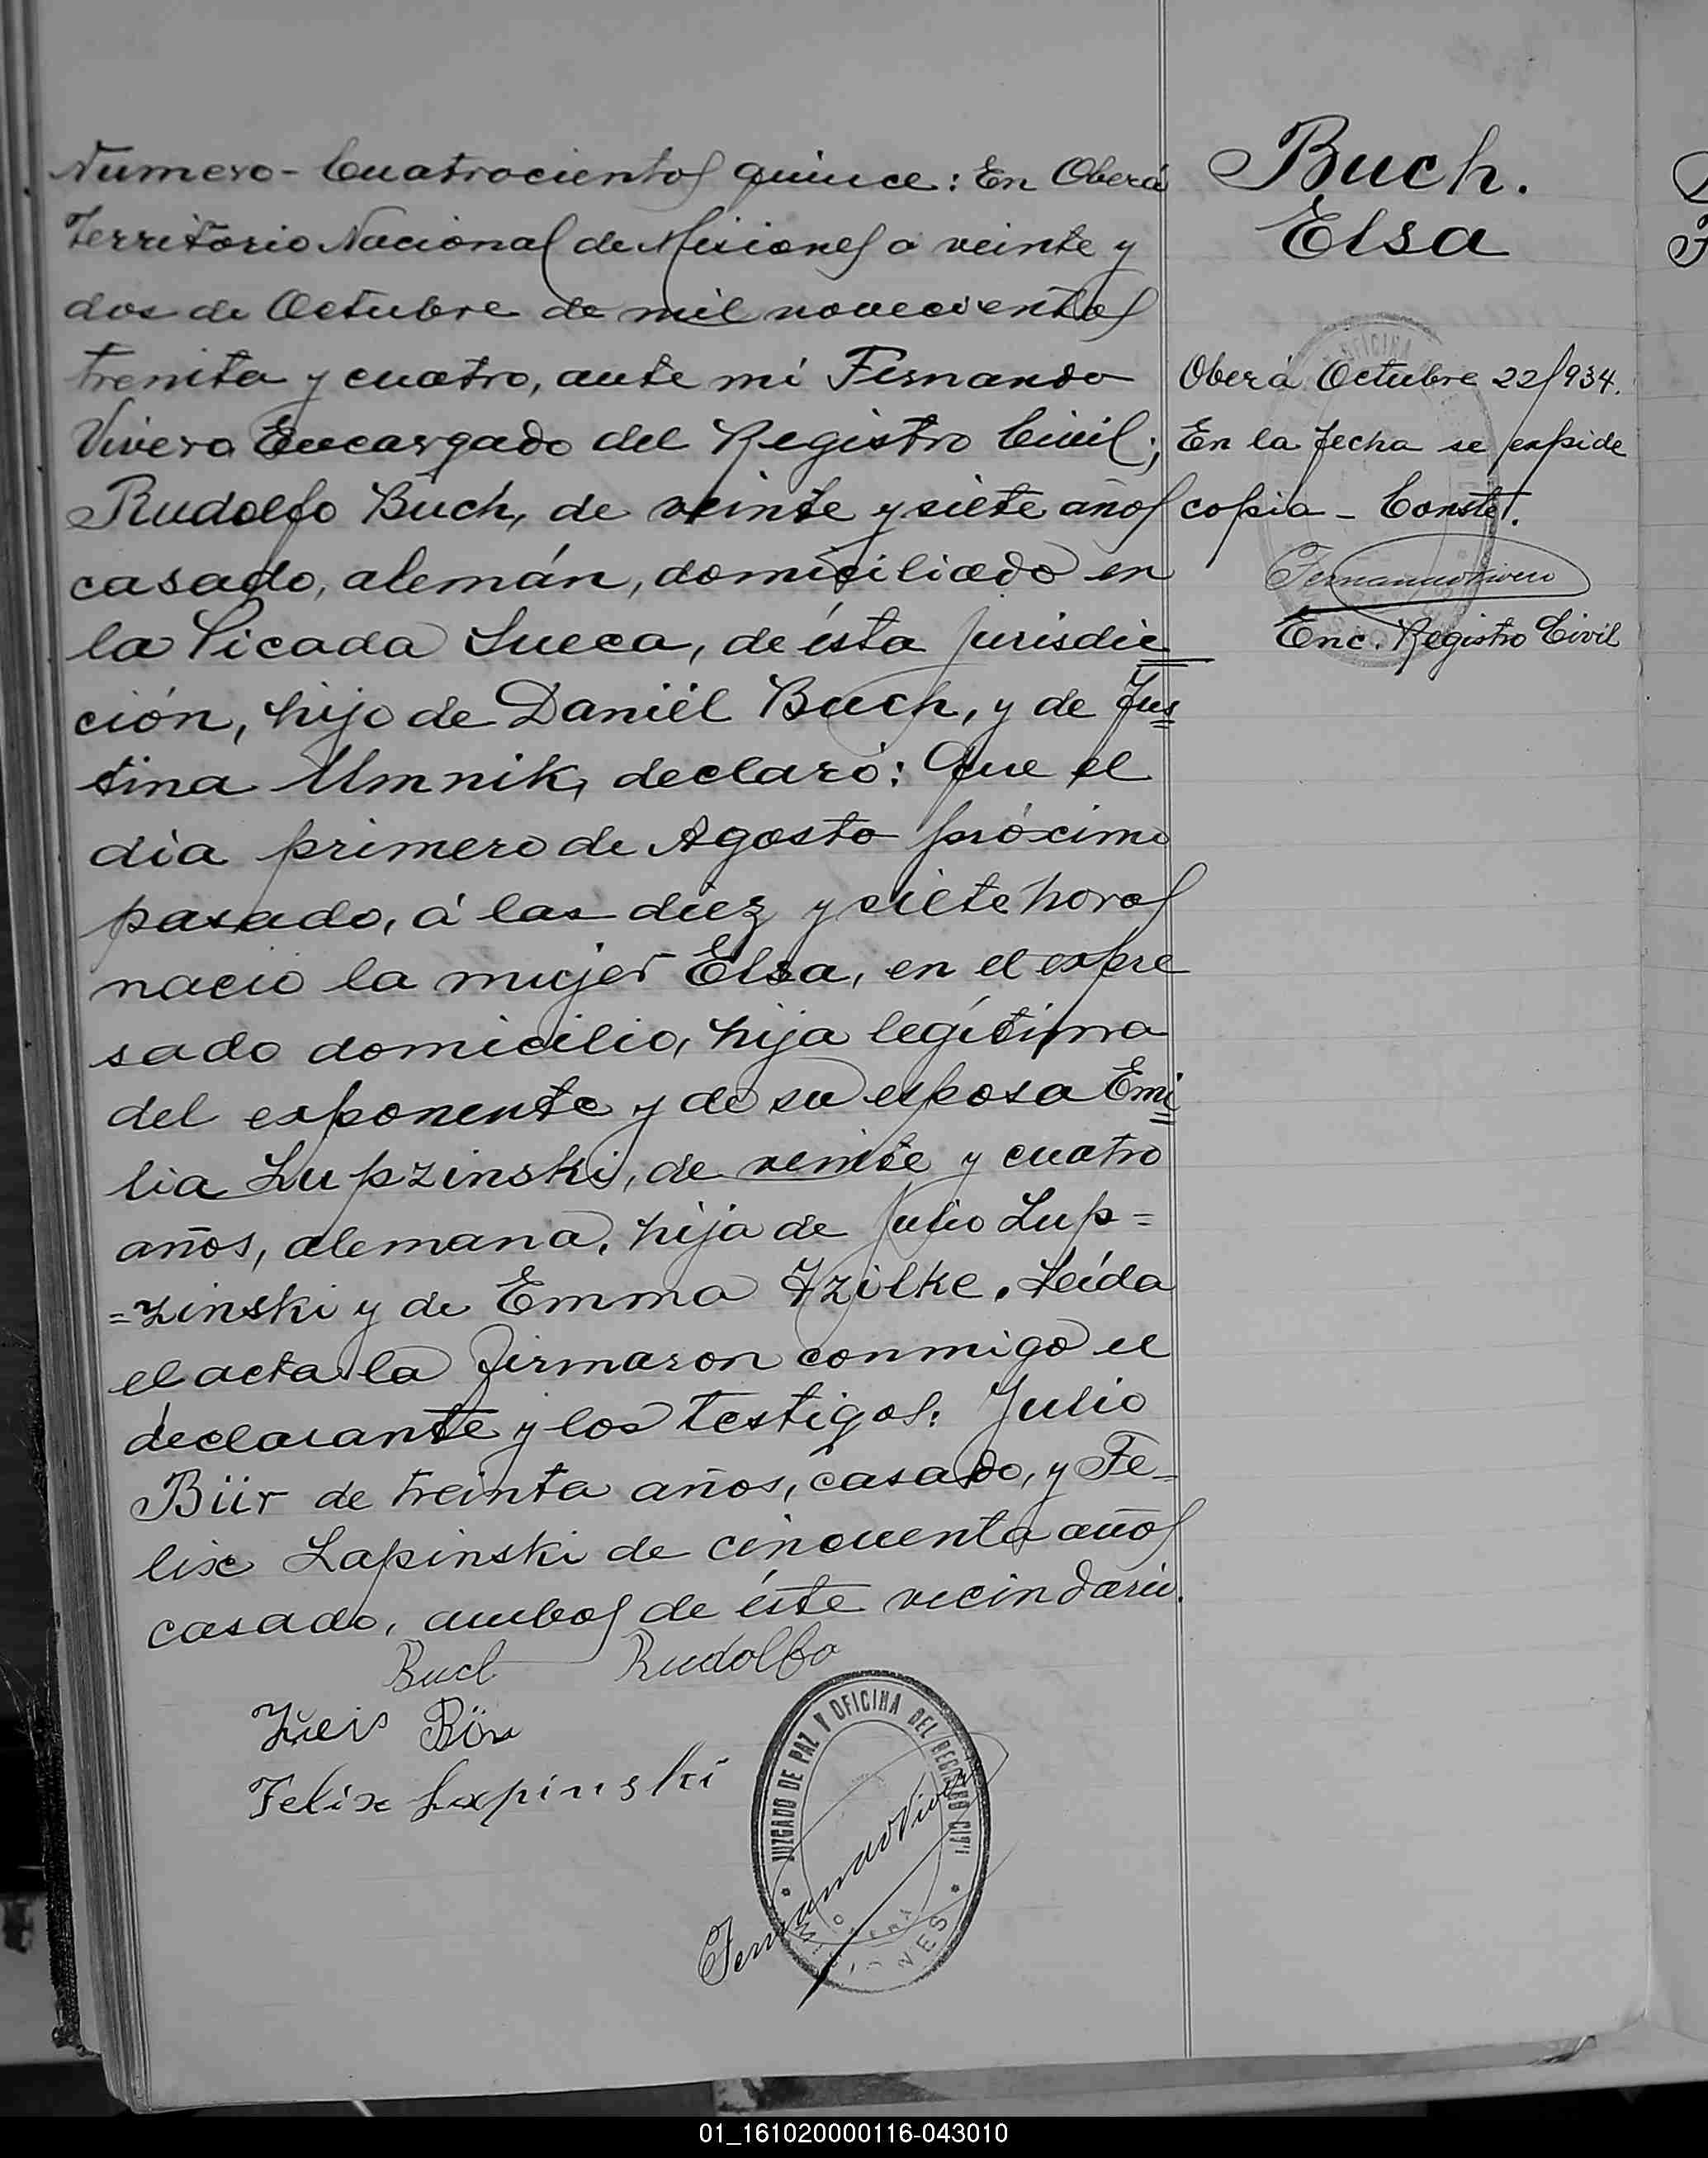 Numero - Cuatrocientos quince: En Oberá
Territorio Nacional de Misiones a veinte y
dos de Octubre de mil novecientos
treinta y cuatro, ante mi Fernando
Vivero Encargado del Registro Civil;
Rudolfo Buch, de veinte y siete años
casado, alemán, domiciliado en
la Picada Sueca, de ésta jurisdic
ción, hijo de Daniél Buch, y de Jus
tina Umnik, declaró: Que el
día primero de Agosto próximo
pasado, á las diez y siete horas
nació la mujer Elsa, en el expre
sado domicilio, hija legítima
del exponente y de su esposa Emi
lia Lupzinski, de veinte y cuatro
años, alemana, hija de Julio Lup=
=zinski y de Emma Izilke. Leída
el acta la firmaron conmigo el
declarante y los testigos: Julio
Büir de treinta años, casado, y Fe-
lix Lapinski de cincuenta años
casado, ambos de éste vecindario.
Buch Rudolfo
Felix Lapinski
JUZGADO DE PAZ Y OFICINA DEL REGISTRO CIVIL
Fernando Vivero
Buch.
Elsa
Oberá Octubre 22/934.
En la fecha se expide
copia - Conste.
Fernando Vivero
Enc. Registro Civil
01_161020000116-043010